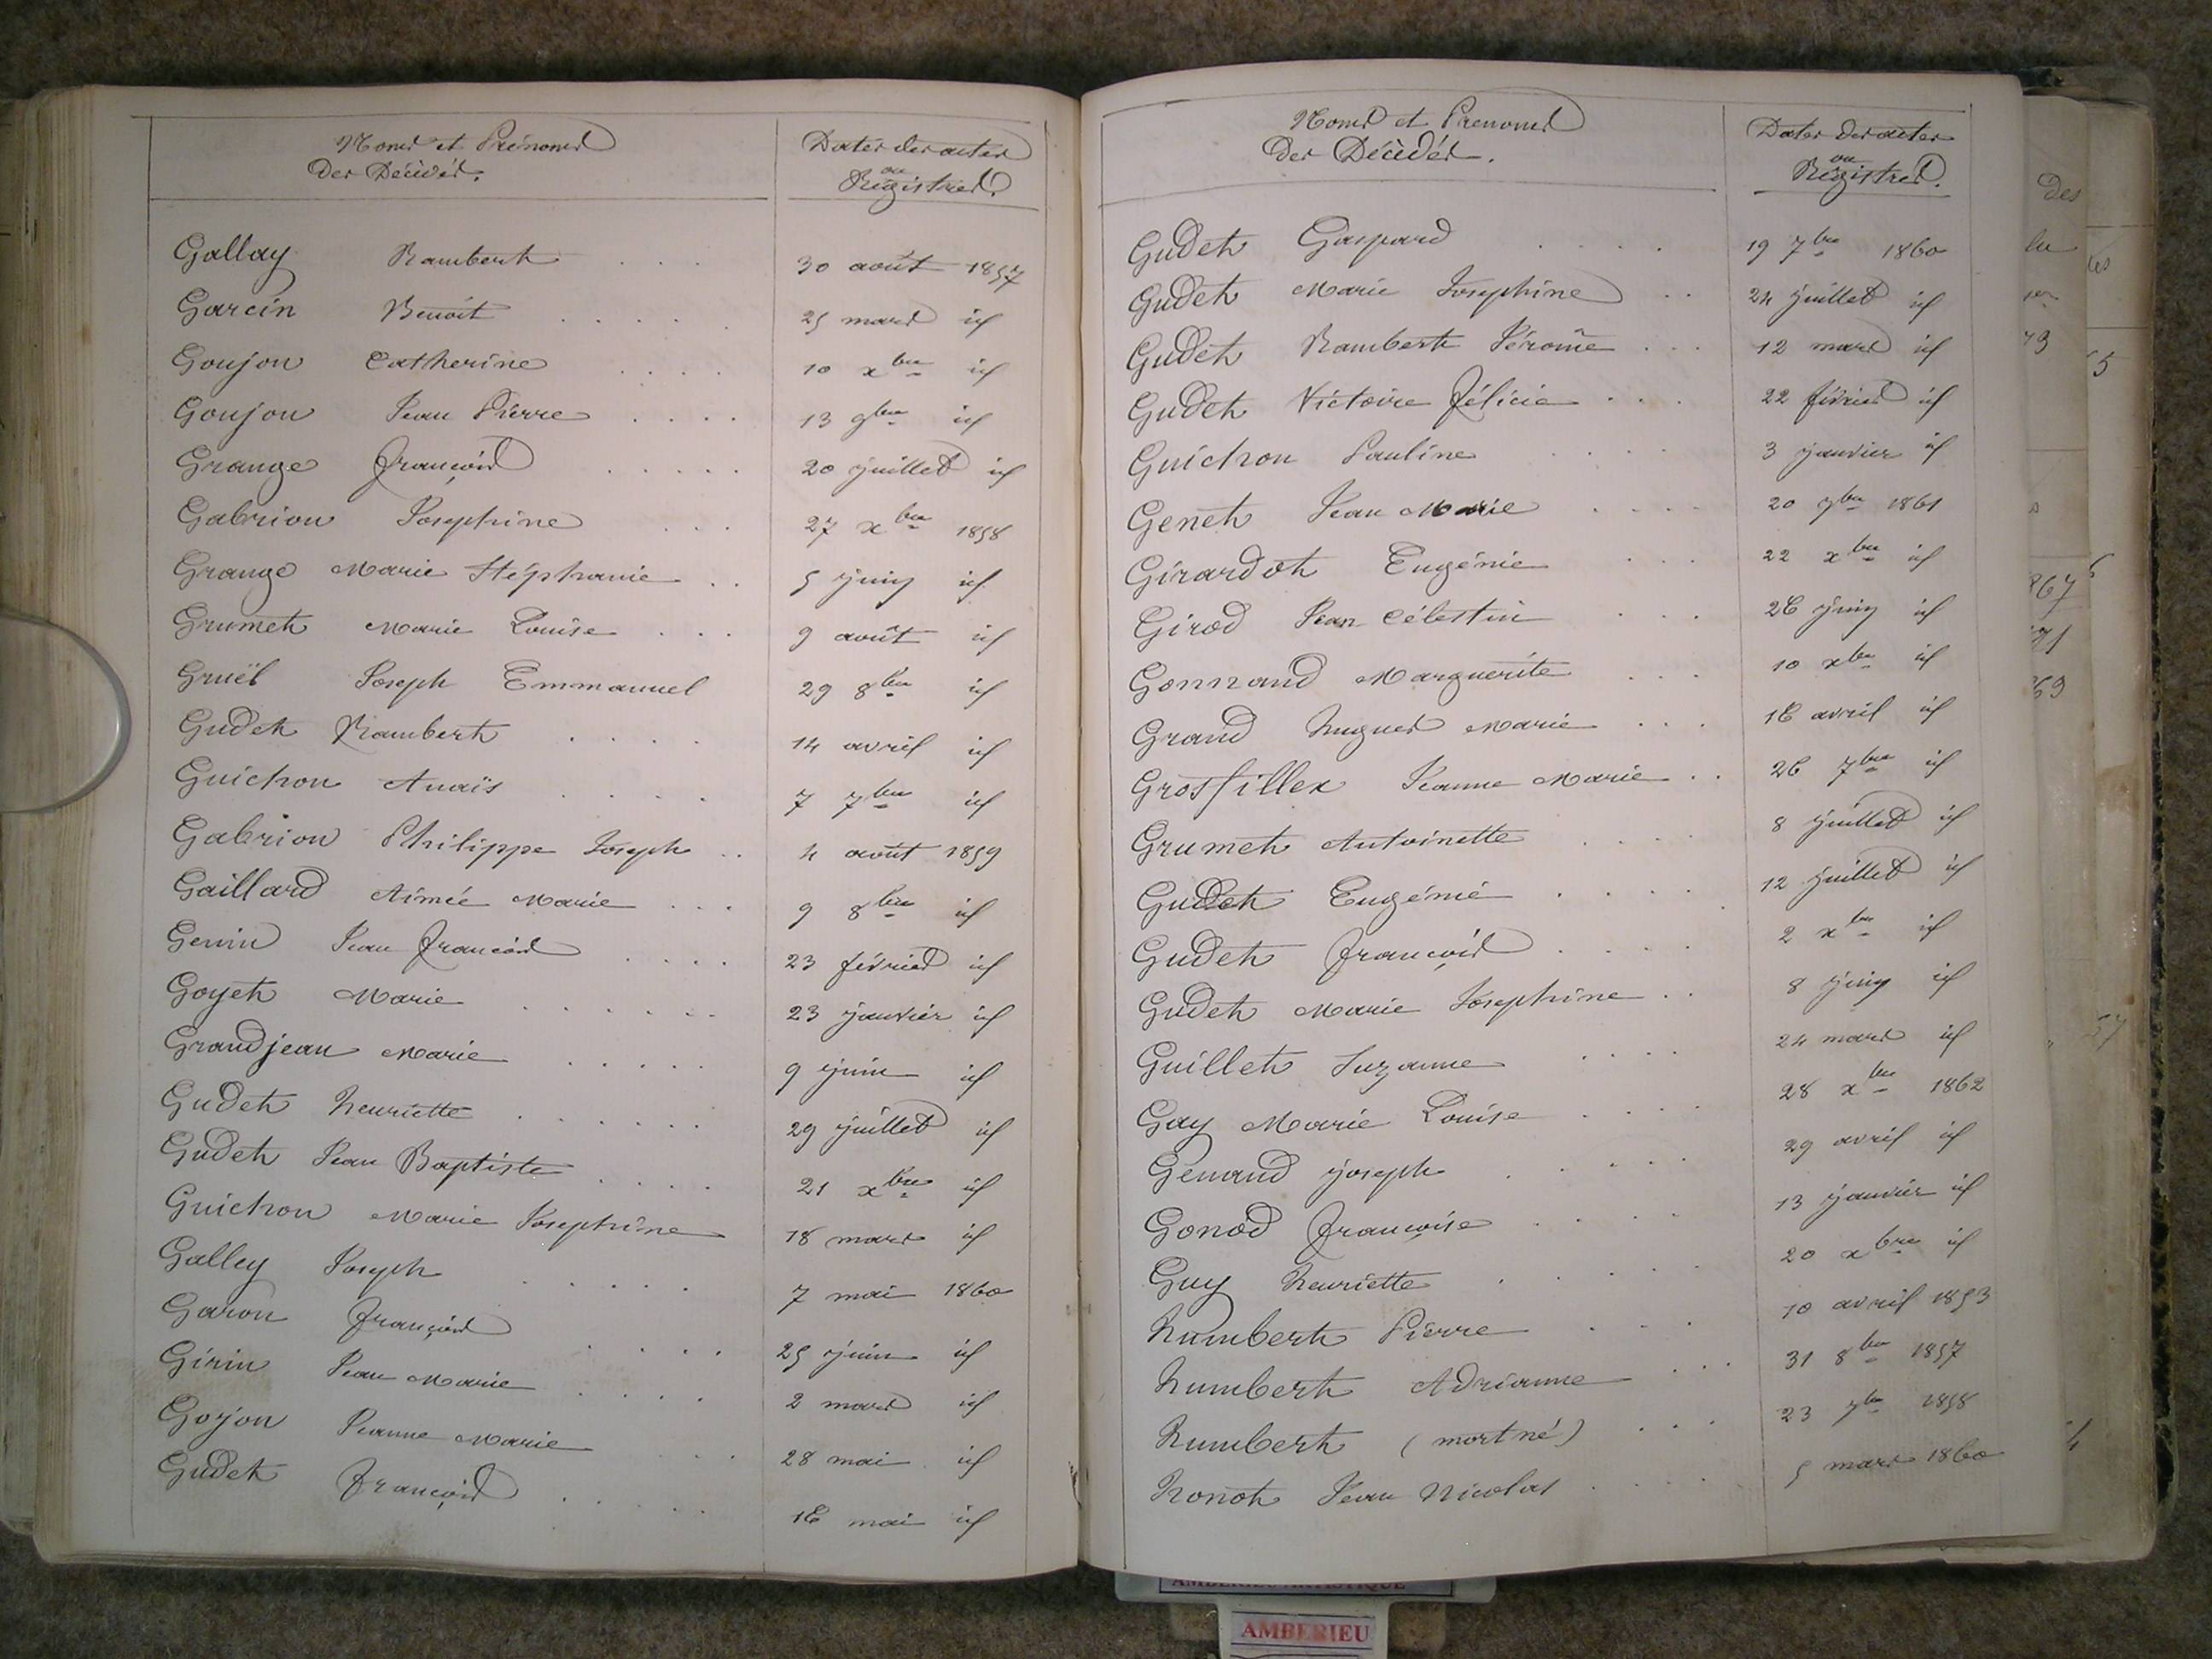 Noms et Prénoms
Des Décédés.
Dates des actes
ou
Registres.
Gallay Rambert . . . 30 août 1857
Garcin Benoit . . . . . 25 mars id
Goujon Catherine . . . . 10 xbre id
Goujon Jean Pierre . . . . 13 9bre id
Grange François . . . . . 20 juillet id
Gabrion Josephine . . . 27 xbre 1858
Grange Marie Stéphanie . . 5 juin id
Grumet Marie Louise . . . 9 août id
Gruël Joseph Emmanuel 29 8bre id
Gudet Rambert . . . . 14 avril id
Guichon Anaïs . . . . 7 7bre id
Gabrion Philippe Joseph . . 4 août 1859
Gaillard Aimée Marie . . . 9 8bre id
Genin Jean François . . . . 23 février id
Goyet Marie . . . . . . 23 janvier id
Grandjean Marie . . . . . 9 juin id
Gudet henriette . . . . . . 29 juillet id
Gudet Jean Baptiste . . . . 21 xbre id
Guichon Marie Josephine 18 mars id
Galley Joseph . . . . . 7 mai 1860
Garon François . . . . 25 juin id
Girin Jean Marie . . . . 2 mars id
Gojon Jeanne Marie . . . 28 mai id
Gudet François . . . . . 16 mai id
Noms et Prenoms
Des Décédés.
Dates des actes
ou
Registres.
Gudet Gaspard . . . . 19 7bre 1860
Gudet Marie Josephine . . 24 juillet id
Gudet Rambert Jérome . . . 12 mars id
Gudet Victoire Félicie . . . 22 février id
Guichon Pauline . . . . 3 janvier id
Genet Jean Marie . . . . 20 9bre 1861
Girardot Eugénie . . . 22 xbre id
Girod Jean Célestin . . . 26 juin id
Gonnand Marguerite . . . 10 xbre id
Grand hugues Marie . . . 16 avril id
Grosfillex Jeanne Marie . . 26 7bre id
Grumet Antoinette . . . 8 juillet id
Gudet Eugénie . . . . 12 juillet id
Gudet François . . . . 2 xbre id
Gudet Marie Josephine . . 8 juin id
Guillet Suzanne . . . . 24 mars id
Gay Marie Louise . . . . 28 xbre 1862
Génand joseph . . . . . 29 avril id
Gonod Françoise . . . . 13 janvier id
Guy henriette . . . . . 20 xbre id
humbert Pierre . . . 10 avril 1853
humbert Adrianne . . . 31 8bre 1857
humbert (mort né) . . . 23 7bre 1858
honot Jean Nicolas . . . . 5 mars 1860
Des
AMBERIEU